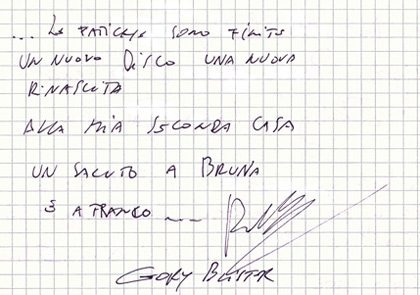 ... LE FATICHE SONO FINITE
UN NUOVO DISCO UNA NUOVA
RINASCITA
ALLA MIA SECONDA CASA
UN SALUTO A BRUNA
E A FRANCO ___
GORY BLISTER